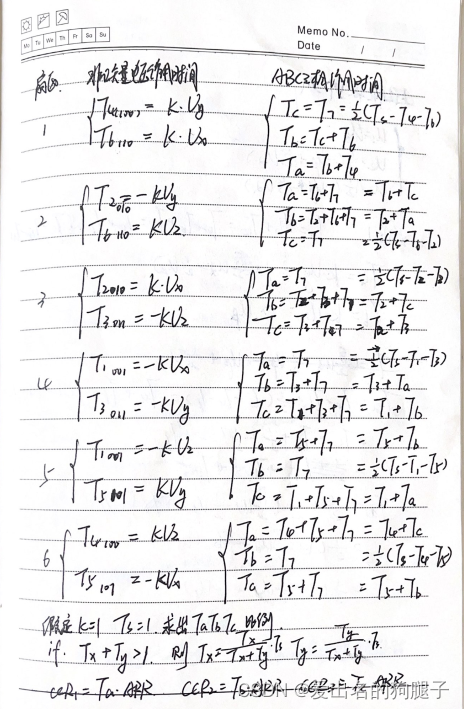 Memo No.
Date / /
Mo Tu We Th Fr Sa Su
扇区 非0矢量电压作用时间 ABC三相作用时间
1
T4(100) = K·Uy
T6 110 = K·Ux
Tc = T7 = ½(Ts-T4-T6)
Tb = Tc+T6
Ta = Tb+T4
2
T2 010 = -KUy
T6 110 = KUz
Ta = T6+T7 = T6+Tc
Tb = T2+T6+T7 = T2+Ta
Tc = T7 = ½(Ts-T6-T2)
3
T2 010 = K·Ux
T3 011 = -KUz
Ta = T7 = ½(Ts-T2-T3)
Tb = T2+T7 = T2+Tc
Tc = T3+T7 = T3
4
T1 001 = -KUx
T3 011 = -KUy
Ta = T7 = ½(Ts-T1-T3)
Tb = T3+T7 = T3+Ta
Tc = T1+T3+T7 = T1+Tb
5
T1 001 = -KUz
T5 = KUy
Ta = T5+T7 = T5+Tb
Tb = T7 = ½(Ts-T1-T5)
Tc = T1+T5+T7 = T1+Ta
6
T4 100 = KUz
T5 101 = -KUx
Ta = T4+T5+T7 = T4+Tc
Tb = T7 = ½(Ts-T4-T5)
Tc = T5+T7 = T5+Tb
假定 K=1 Ts=1. 求出 Ta Tb Tc
if. Tx+Ty>1. 则 Tx = Tx/(Tx+Ty)·Ts Ty = Ty/(Tx+Ty)·Ts
CCR1 = Ta·ARR CCR2 = Tb·ARR
CSDN @爱出名的狗腿子